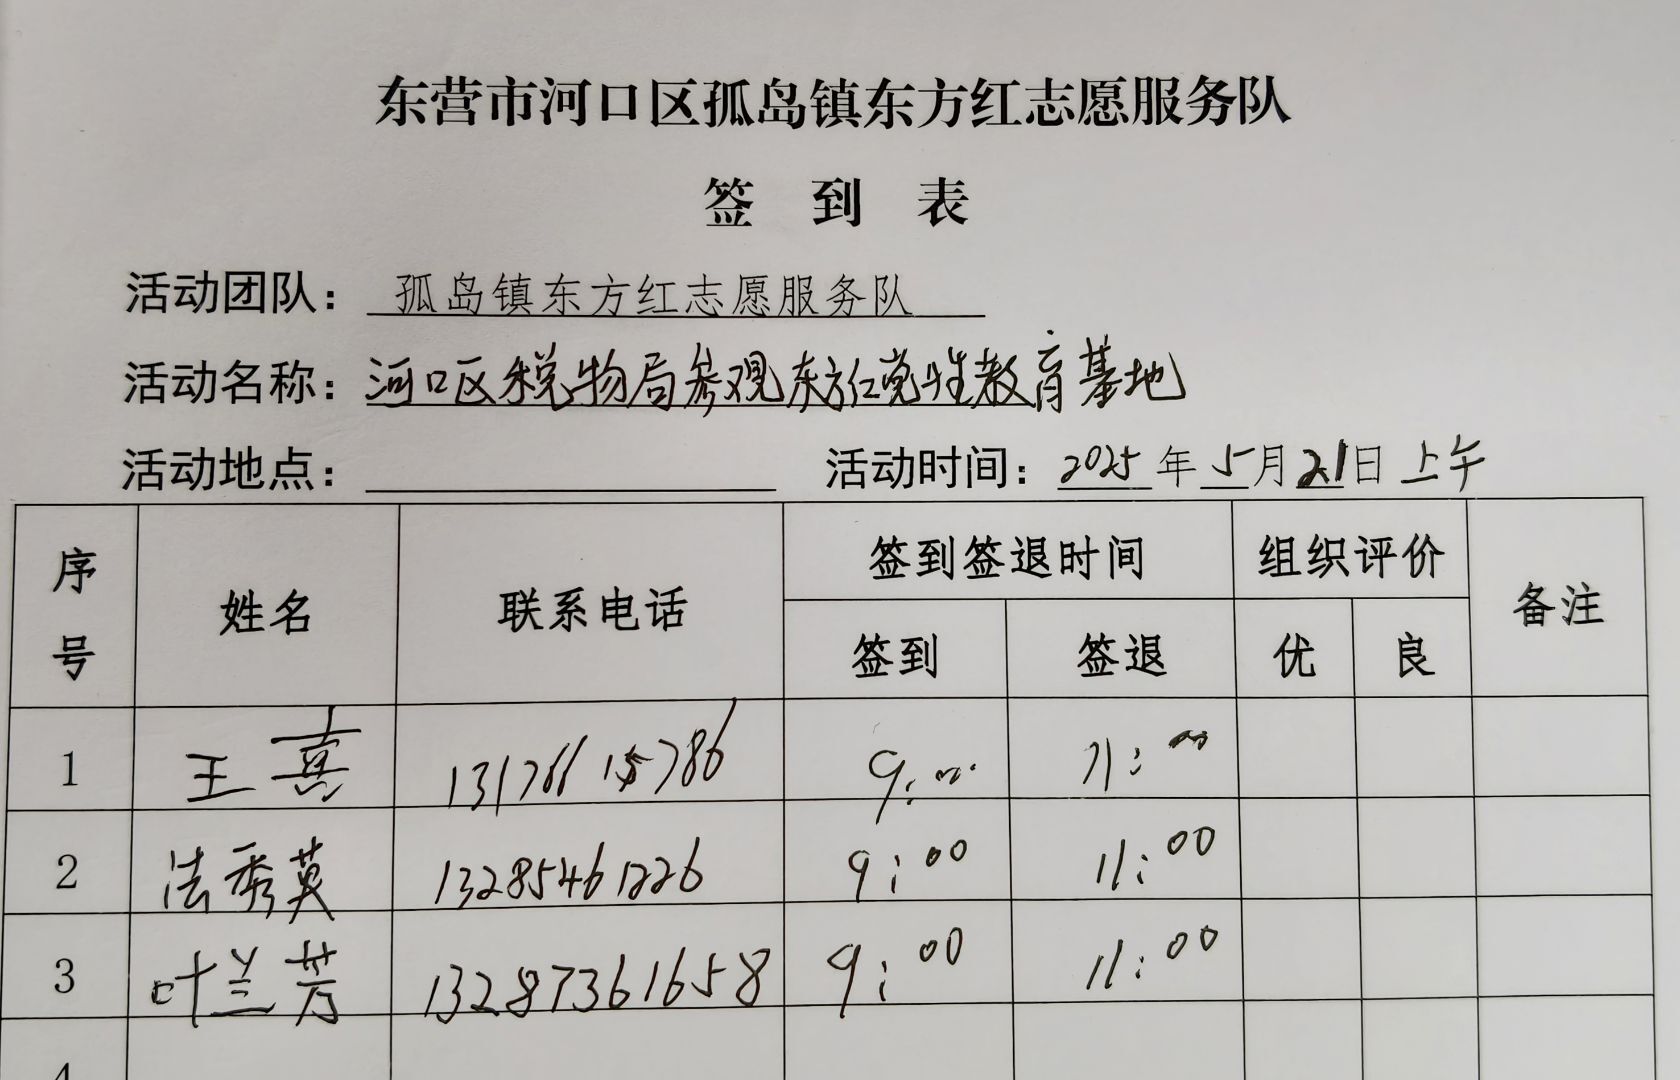 东营市河口区孤岛镇东方红志愿服务队
签 到 表
活动团队： 孤岛镇东方红志愿服务队
活动名称：河口区税物局参观东方红党性教育基地
活动地点： 活动时间：2025年5月21日上午
序号 姓名 联系电话 签到签退时间 组织评价 备注
签到 签退 优 良
1 王喜 9:00 11:00
2 法秀英 13285461226 9:00 11:00
3 叶兰芳 13287361658 9:00 11:00
4